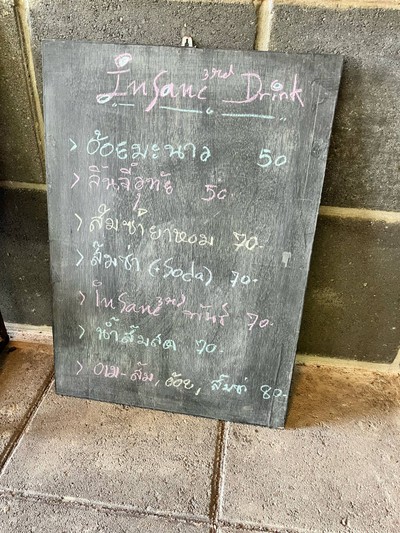 Insane 3rd Drink
> อ้อยมะนาว 50
> ลิ้นลือทัย 50.-
> ส้มซ่ายาหอม 70.-
> ส้มซ่า (+Soda) 70.-
> Insane 3rd พันธ์ 70.-
> น้ำส้มสด 70.-
> ส้ม, อ้อย, ส้มซ่า 80.-